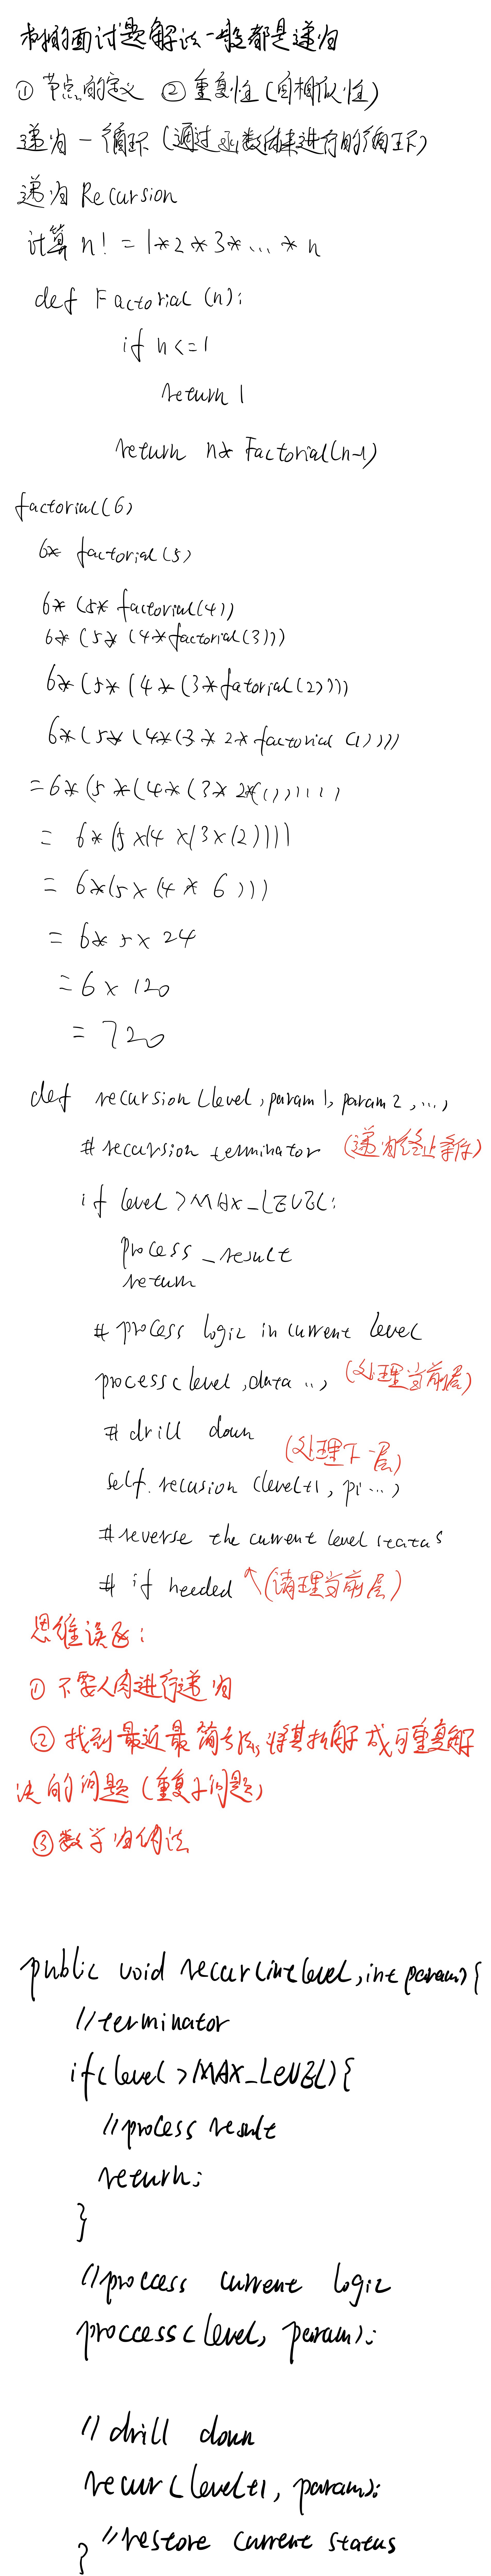 树的面试题解法一般都是递归
① 节点的定义 ② 重复性(自相似性)
递归 - 循环 (通过函数体来进行的循环)
递归 Recursion
计算 n! = 1*2*3*...*n
def Factorial (n):
if n<=1
return 1
return n* Factorial(n-1)
factorial(6)
6* factorial(5)
6* (5* factorial(4))
6* (5* (4*factorial(3)))
6*(5*(4*(3*fatorial(2))))
6*(5*(4*(3*2*factorial(1))))
=6*(5*(4*(3*2*(1)))))
= 6*(5*(4*(3*(2))))
= 6*(5*(4*6)))
= 6*5*24
=6×120
= 720
def recursion (level, param1, param2, ...,
# recursion terminator (递归终止条件)
if level>MAX_LEVEL:
process_result
return
# process logic in current level
process(level, data ..., (处理当前层)
# drill down
(处理下一层)
self.recusion (level+1, p1 ...,
#reverse the current level status
# if needed ↖(清理当前层)
思维误区:
① 不要人肉进行递归
② 找到最近最简方法,将其拆解成可重复解
决的问题(重复子问题)
③数学归纳法
public void recur(int level, int param){
//terminator
if(level>MAX_LEVEL){
//process result
return;
}
//process current logic
proccess(level, param);
//drill down
recur(level+1, param);
//restore current status
}